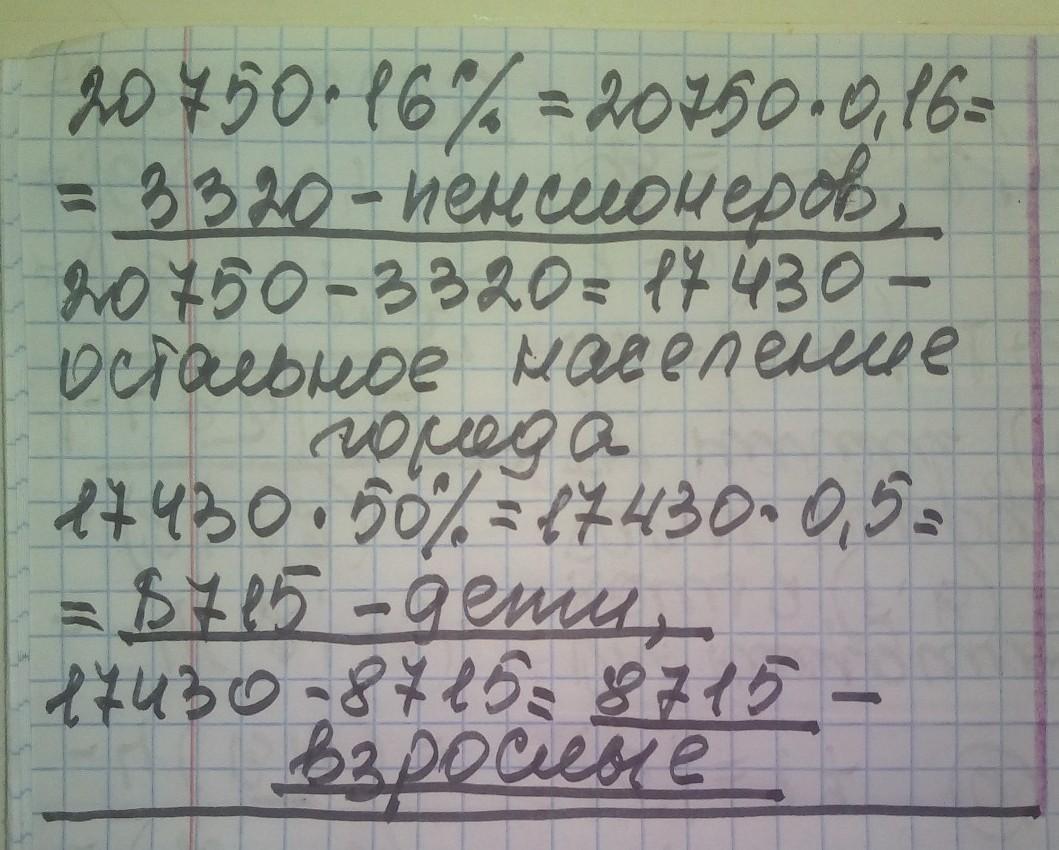 20 750 · 16% = 20750 · 0,16 =
= 3320 - пенсионеров,
20 750 - 3320 = 17 430 -
остальное население
города
17 430 · 50% = 17 430 · 0,5 =
= 8715 - дети,
17430 - 8715 = 8715 -
взрослые